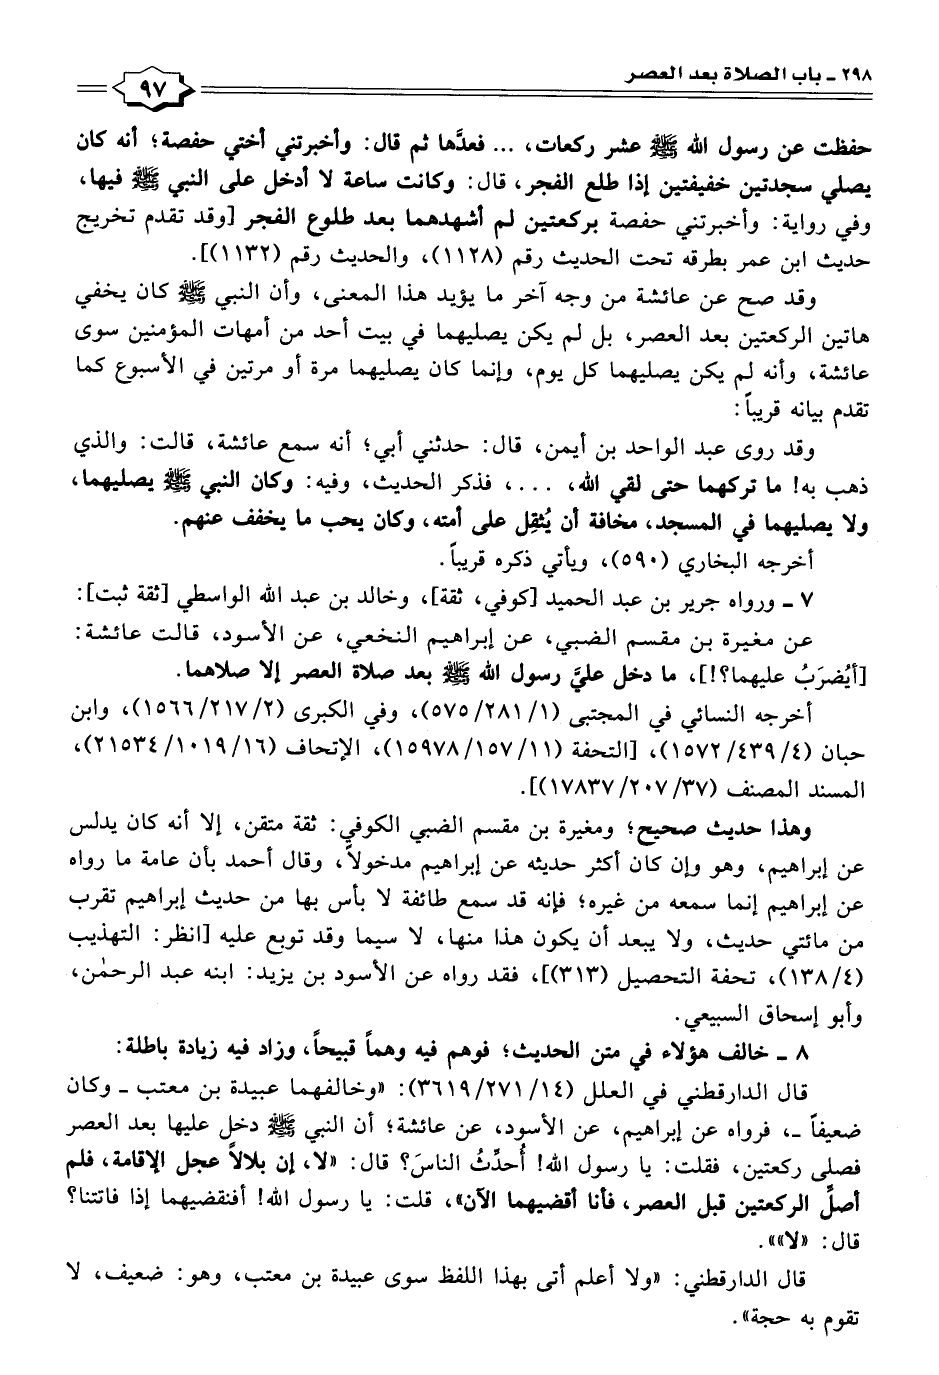 ٢٩٨ ـ باب الصلاة بعد العصر
٩٧
حفظت عن رسول الله ﷺ عشر ركعات، ... فعدَّها ثم قال: وأخبرتني أختي حفصة؛ أنه كان
يصلي سجدتين خفيفتين إذا طلع الفجر، قال: وكانت ساعة لا أدخل على النبي ﷺ فيها،
وفي رواية: وأخبرتني حفصة بركعتين لم أشهدهما بعد طلوع الفجر [وقد تقدم تخريج
حديث ابن عمر بطرقه تحت الحديث رقم (١١٢٨)، والحديث رقم (١١٣٢)].
وقد صح عن عائشة من وجه آخر ما يؤيد هذا المعنى، وأن النبي ﷺ كان يخفي
هاتين الركعتين بعد العصر، بل لم يكن يصليهما في بيت أحد من أمهات المؤمنين سوى
عائشة، وأنه لم يكن يصليهما كل يوم، وإنما كان يصليهما مرة أو مرتين في الأسبوع كما
تقدم بيانه قريباً:
وقد روى عبد الواحد بن أيمن، قال: حدثني أبي؛ أنه سمع عائشة، قالت: والذي
ذهب به! ما تركهما حتى لقي الله، ...، فذكر الحديث، وفيه: وكان النبي ﷺ يصليهما،
ولا يصليهما في المسجد، مخافة أن يُثقِل على أمته، وكان يحب ما يخفف عنهم.
أخرجه البخاري (٥٩٠)، ويأتي ذكره قريباً.
٧ ـ ورواه جرير بن عبد الحميد [كوفي، ثقة]، وخالد بن عبد الله الواسطي [ثقة ثبت]:
عن مغيرة بن مقسم الضبي، عن إبراهيم النخعي، عن الأسود، قالت عائشة:
[أيُضرَبُ عليهما؟!]، ما دخل عليَّ رسول الله ﷺ بعد صلاة العصر إلا صلاهما.
أخرجه النسائي في المجتبى (١/ ٢٨١/ ٥٧٥)، وفي الكبرى (٢/ ٢١٧/ ١٥٦٦)، وابن
حبان (٤/ ٤٣٩/ ١٥٧٢)، [التحفة (١١/ ١٥٧/ ١٥٩٧٨)، الإتحاف (١٦/ ١٠١٩/ ٢١٥٣٤)،
المسند المصنف (٣٧/ ٢٠٧/ ١٧٨٣٧)].
وهذا حديث صحيح؛ ومغيرة بن مقسم الضبي الكوفي: ثقة متقن، إلا أنه كان يدلس
عن إبراهيم، وهو وإن كان أكثر حديثه عن إبراهيم مدخولاً، وقال أحمد بأن عامة ما رواه
عن إبراهيم إنما سمعه من غيره؛ فإنه قد سمع طائفة لا بأس بها من حديث إبراهيم تقرب
من مائتي حديث، ولا يبعد أن يكون هذا منها، لا سيما وقد توبع عليه [انظر: التهذيب
(٤/ ١٣٨)، تحفة التحصيل (٣١٣)]، فقد رواه عن الأسود بن يزيد: ابنه عبد الرحمٰن،
وأبو إسحاق السبيعي.
٨ ـ خالف هؤلاء في متن الحديث؛ فوهم فيه وهماً قبيحاً، وزاد فيه زيادة باطلة:
قال الدارقطني في العلل (١٤/ ٢٧١/ ٣٦١٩): «وخالفهما عبيدة بن معتب ـ وكان
ضعيفاً ـ، فرواه عن إبراهيم، عن الأسود، عن عائشة؛ أن النبي ﷺ دخل عليها بعد العصر
فصلى ركعتين، فقلت: يا رسول الله! أُحدِّثُ الناسَ؟ قال: «لا، إن بلالاً عجل الإقامة، فلم
أصلِّ الركعتين قبل العصر، فأنا أقضيهما الآن»، قلت: يا رسول الله! أفنقضيهما إذا فاتتنا؟
قال: «لا»».
قال الدارقطني: «ولا أعلم أتى بهذا اللفظ سوى عبيدة بن معتب، وهو: ضعيف، لا
تقوم به حجة».